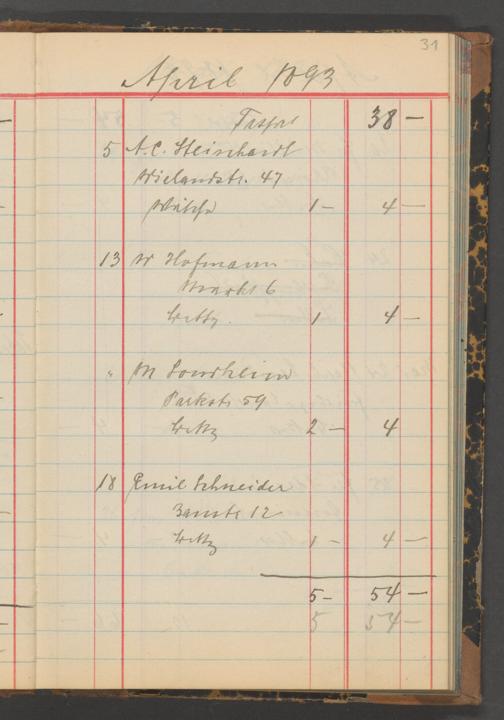 31
April 1893
38 —
5 A. C. Steinhardt
Wielandstr. 47
1 - 4 —
13 W Hofmann
Markt 6
1 4 —
" M Sondheim
Parkstr 59
2 - 4
18 Emil Schneider
12
1 - 4 —
5 - 54 —
5 54 —